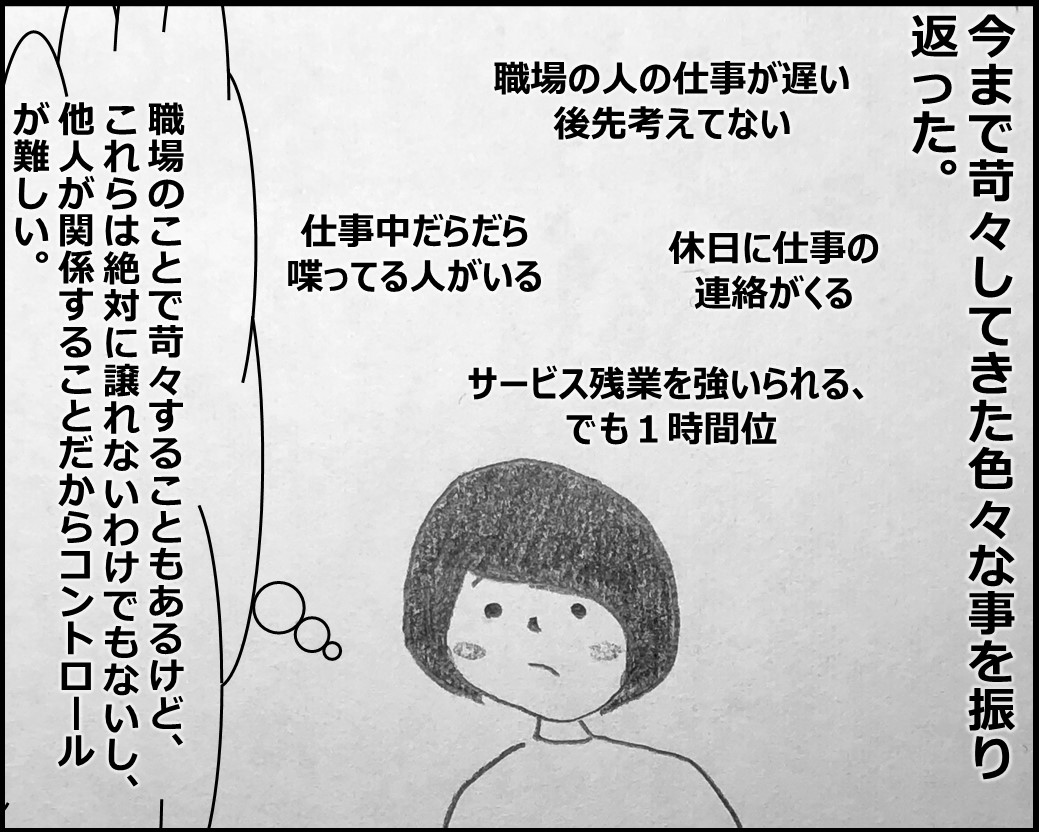 今まで苛々してきた色々な事を振り
返った。
職場の人の仕事が遅い
後先考えてない
休日に仕事の
連絡がくる
仕事中だらだら
喋ってる人がいる
サービス残業を強いられる、
でも１時間位
職場のことで苛々することもあるけど、
これらは絶対に譲れないわけでもないし、
他人が関係することだからコントロール
が難しい。